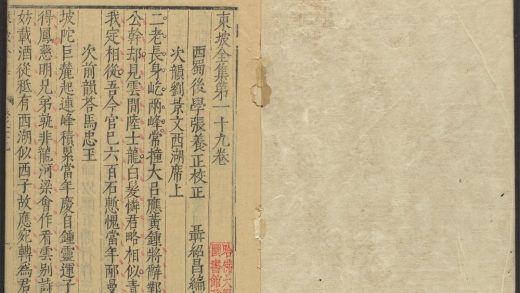 東坡全集第一十九卷
西蜀後學張養正校正　聶紹昌編
次韻劉景文西湖席上
二老長身屹兩峰常撞大呂應黃鍾將辭鄴
公幹却見雲間陸士龍白髮憐君略相似青
我定相從吾今官巳六百石慙愧當年邴曼
次前韻荅馬忠王
坡陀巨麓起連峰積累當年慶自鍾靈運子
得鳳慈明兄弟孰非龍河梁會作看雲別詩
妨載酒從祗有西湖似西子故應宛轉為君
哈佛大
圖書館